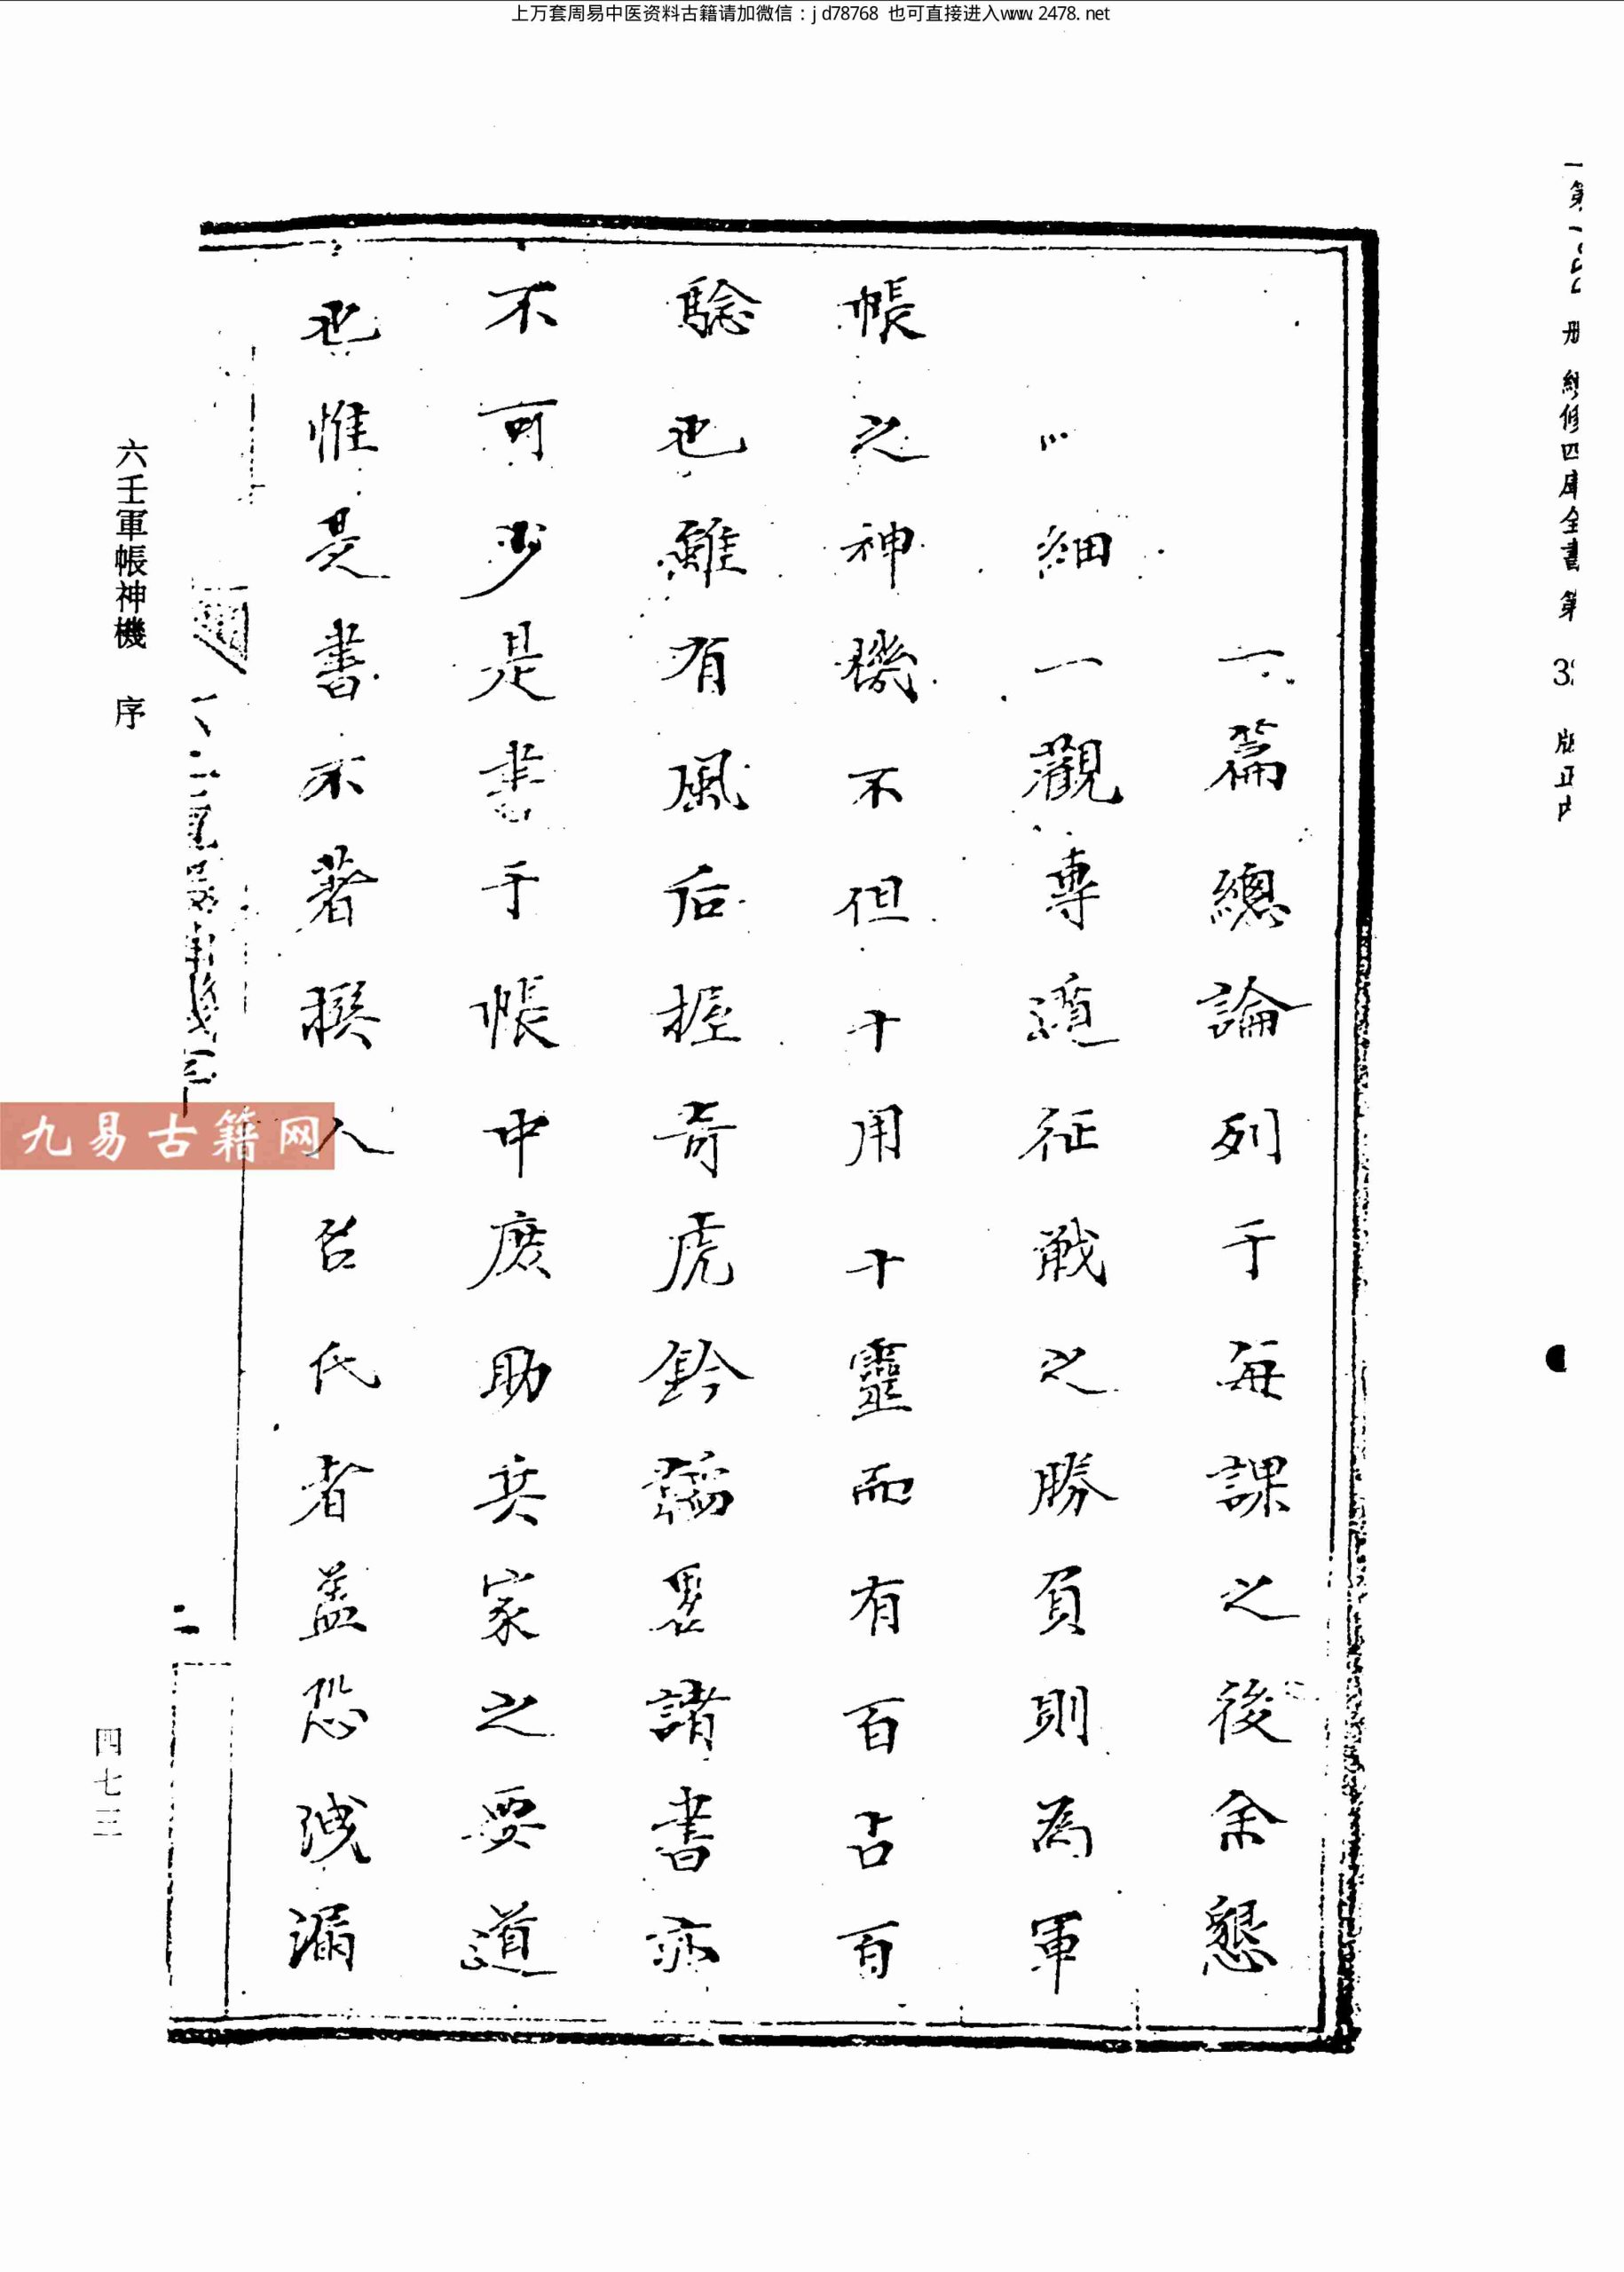 上万套周易中医资料古籍请加微信：jd78768 也可直接进入www.2478.net
册 續修四庫全書 第
一篇總論列于每課之後余懇
細一觀專道征戰之勝負則為軍
帳之神機不但十用十靈而有百占百
騐也雖有風后握奇虎鈐韜畧諸書亦
不可少是書于帳中庶助兵家之要道
也惟是書不著撰人名氏者蓋恐洩漏
二
六壬軍帳神機 序
四七三
九易古籍网